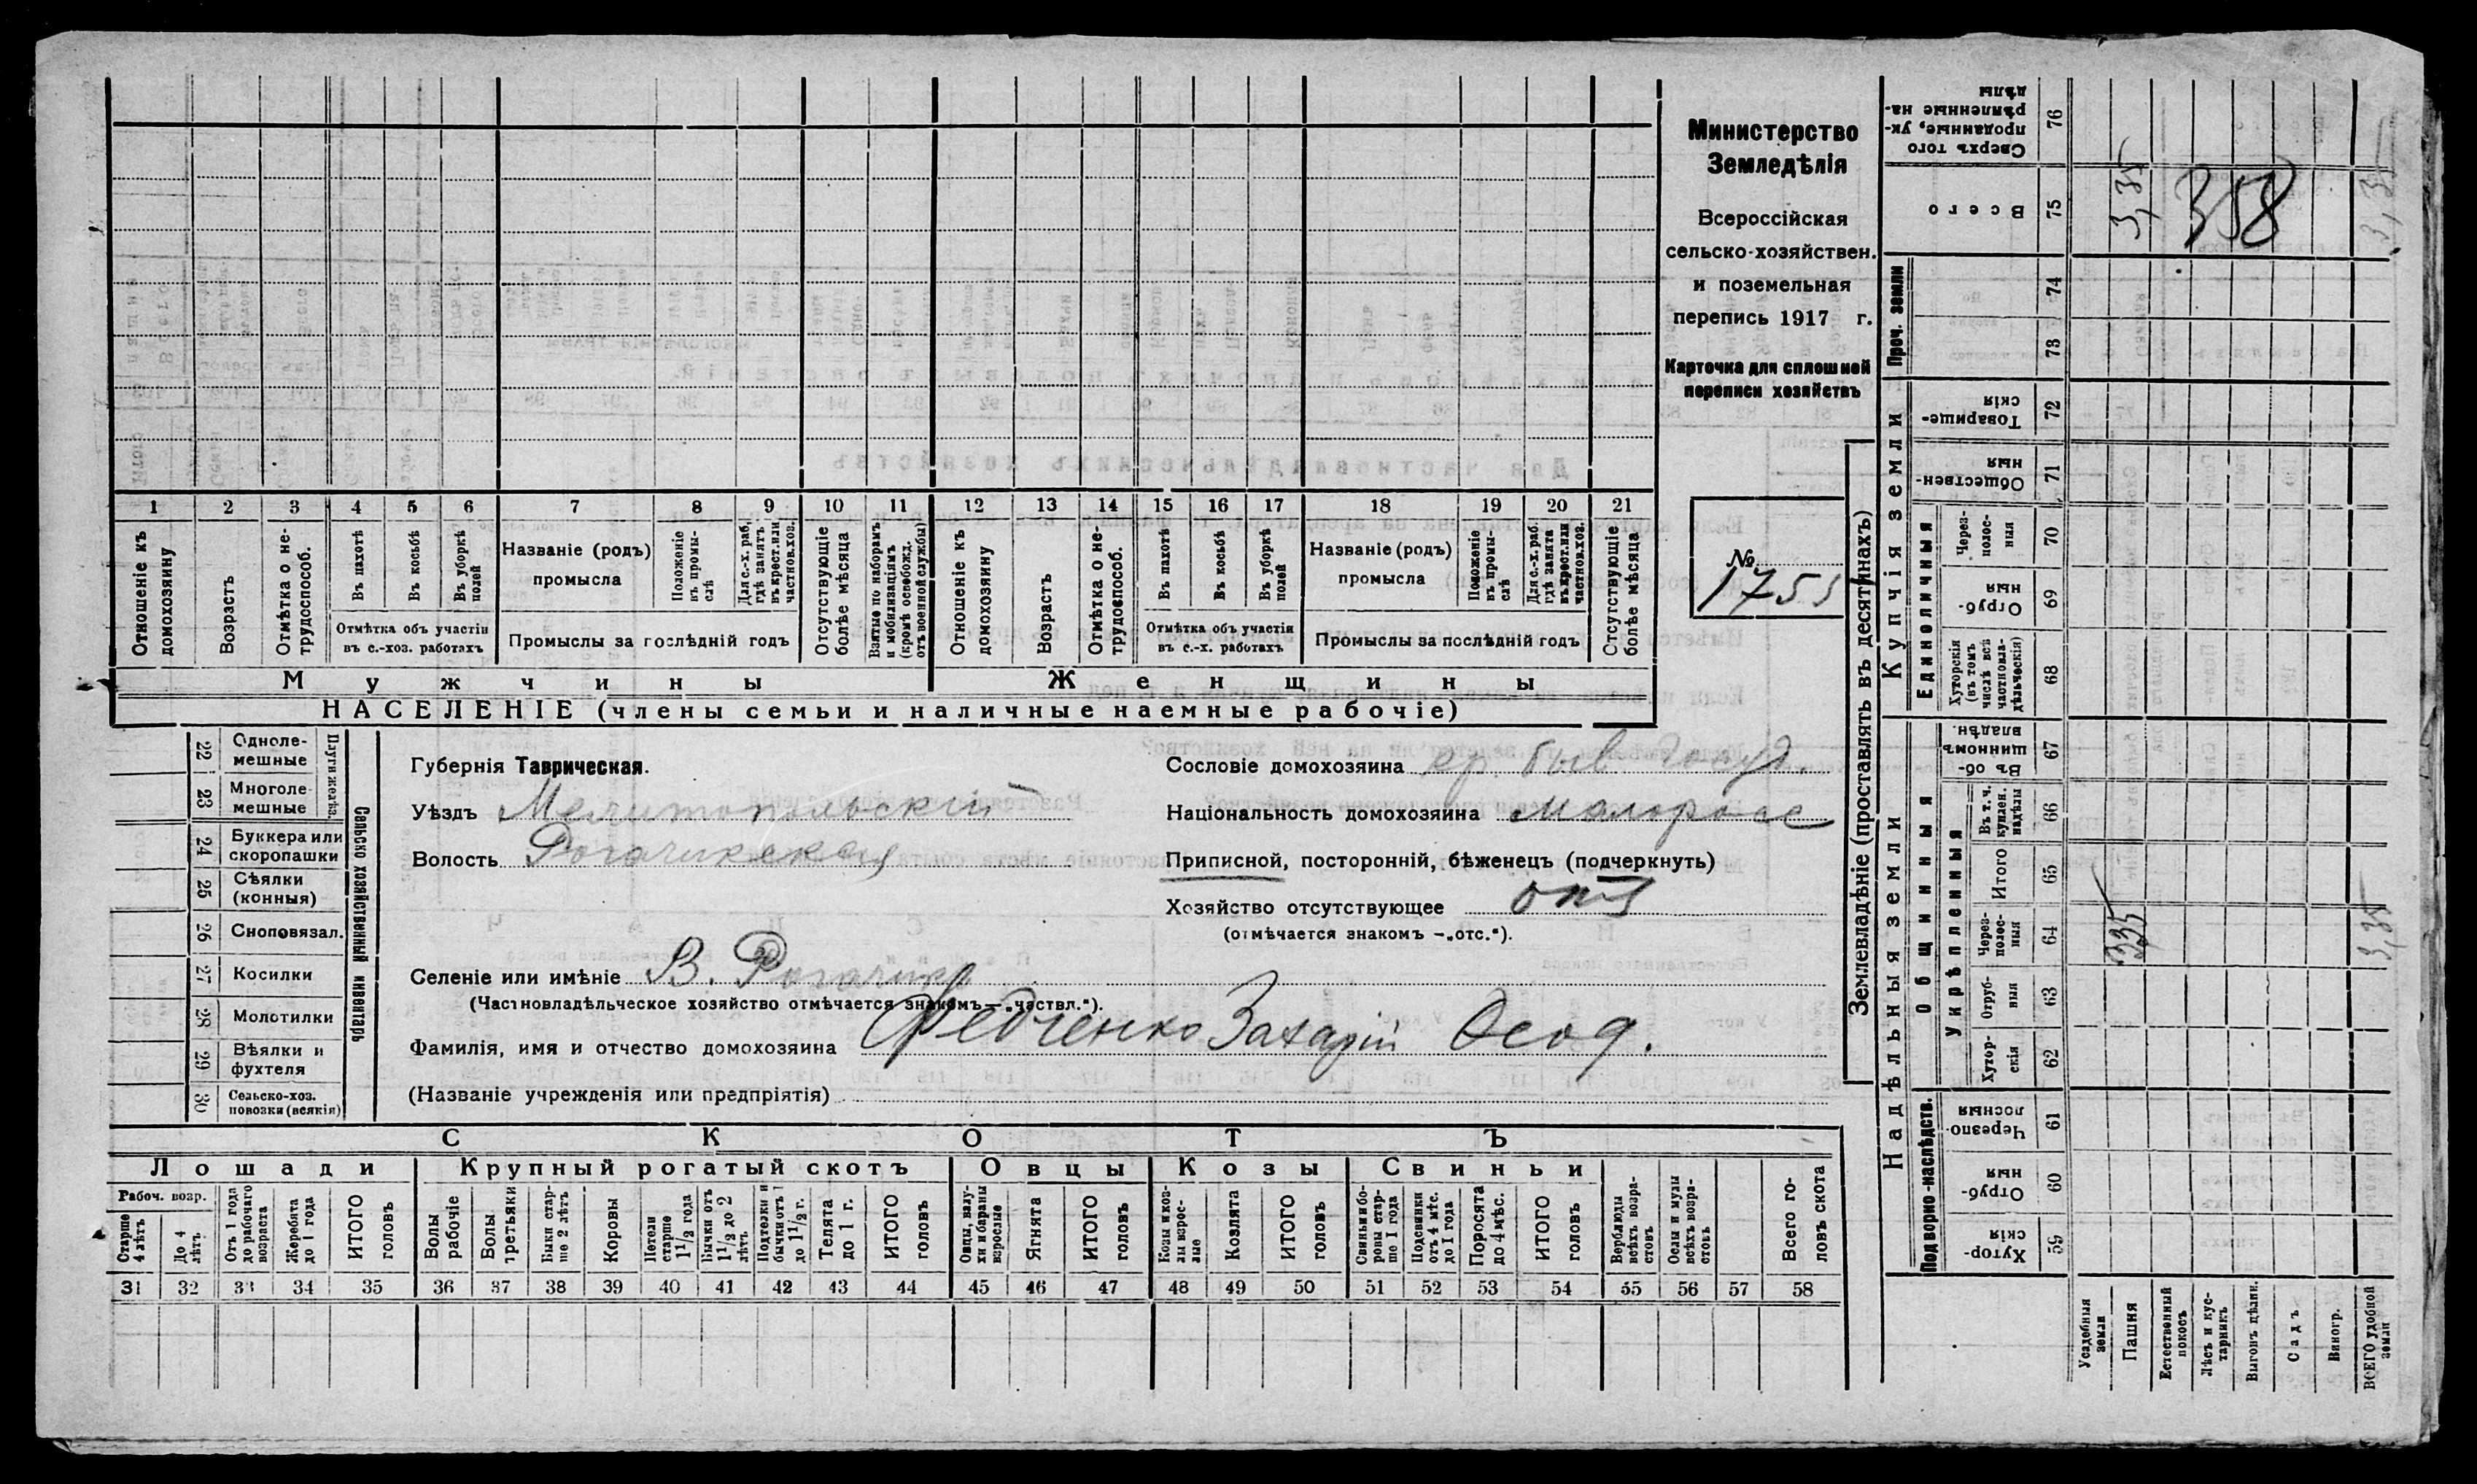 Министерство
Земледѣлія
Всероссійская
сельско-хозяйствен.
и поземельная
перепись 1917 г.
Карточка для сплошной
переписи хозяйствъ
№
1 2 3 4 5 6 7 8 9 10 11 12 13 14 15 16 17 18 19 20 21
Отношеніе къ домохозяину
Возрастъ
Отмѣтка о не-трудоспособ.
Въ пахотѣ
Въ косьбѣ
Въ уборкѣ полей
Отмѣтка объ участіи
въ с.-хоз. работахъ
Названіе (родъ)
промысла
Положеніе въ промы-слѣ
Для с.-х. раб. гдѣ занятъ въ крест. или частнов. хоз.
Промыслы за послѣдній годъ
Отсутствующіе болѣе мѣсяца
Взятые по наборамъ и мобилизаціямъ (кромѣ освобожд. отъ военной службы)
Отношеніе къ домохозяину
Возрастъ
Отмѣтка о не-трудоспособ.
Въ пахотѣ
Въ косьбѣ
Въ уборкѣ полей
Отмѣтка объ участіи
въ с.-х. работахъ
Названіе (родъ)
промысла
Положеніе въ промы-слѣ
Для с.-х. раб. гдѣ занята въ крест. или частнов. хоз.
Промыслы за послѣдній годъ
Отсутствующіе болѣе мѣсяца
Мужчины
Женщины
НАСЕЛЕНІЕ (члены семьи и наличные наемные рабочіе)
22 Однолемешные
23 Многолемешные
Плуги желѣз.
24 Буккера или скоропашки
25 Сѣялки (конныя)
26 Сноповязал.
27 Косилки
28 Молотилки
29 Вѣялки и фухтеля
30 Сельско-хоз. повозки (всякія)
Сельско хозяйственный инвентарь
Губернія Таврическая.
Уѣздъ Мелитопольскій
Волость Рогачикская
Селеніе или имѣніе В. Рогачик
(Частновладѣльческое хозяйство отмѣчается знакомъ —„частвл.“).
Фамилія, имя и отчество домохозяина Федченко Захарій Ѳеод.
(Названіе учрежденія или предпріятія)
Сословіе домохозяина кр. быв
Національность домохозяина малоросс
Приписной, посторонній, бѣженецъ (подчеркнуть)
Хозяйство отсутствующее
(отмѣчается знакомъ —„отс.“).
СКОТЪ
Лошади
Крупный рогатый скотъ
Овцы
Козы
Свиньи
Рабоч. возр.
Старше 4 лѣтъ
До 4 лѣтъ
Отъ 1 года до рабочаго возраста
Жеребята до 1 года
ИТОГО головъ
Волы рабочіе
Волы третьяки
Быки стар-ше 2 лѣтъ
Коровы
Нетели старше 1 1/2 года
Бычки отъ 1 1/2 до 2 лѣтъ
Подтелки и бычки отъ 1 до 1 1/2 г.
Телята до 1 г.
ИТОГО головъ
Овцы, валу-хи и бараны взрослые
Ягнята
ИТОГО головъ
Козы и коз-лы взрос-лые
Козлята
ИТОГО головъ
Свиньи и бо-ровы стар-ше 1 года
Подсвинки отъ 4 мѣс. до 1 года
Поросята до 4 мѣс.
ИТОГО головъ
Верблюды всѣхъ возра-стовъ
Ослы и мулы всѣхъ возра-стовъ
Всего го-ловъ скота
31 32 33 34 35 36 37 38 39 40 41 42 43 44 45 46 47 48 49 50 51 52 53 54 55 56 57 58
Землевладѣніе (проставлять въ десятинахъ)
Надѣльныя земли
Купчія земли
Проч. земли
Подворно-наслѣдств.
Общинныя
Укрѣпленныя
Единоличныя
Сверхъ того проданные, ук-рѣпленные на-дѣлы 76
Всего 75
74
73
Товарище-скія 72
Обществен-ныя 71
Через-полос-ныя 70
Отруб-ныя 69
Хуторскія (въ томъ числѣ всѣ частновла-дѣльческія) 68
Въ об-щинномъ владѣн. 67
Въ т. ч. куплен. надѣлы 66
Итого 65
Через-полос-ныя 64
Отруб-ныя 63
Хутор-скія 62
Черезпо-лосныя 61
Отруб-ныя 60
Хутор-скія 59
Усадебныя земли
Пашня
Естественный покосъ
Лѣсъ и кус-тарникъ
Выгонъ цѣлин.
Садъ
Виногр.
ВСЕГО удобной земли
3,35
358
3,35
335
3,35